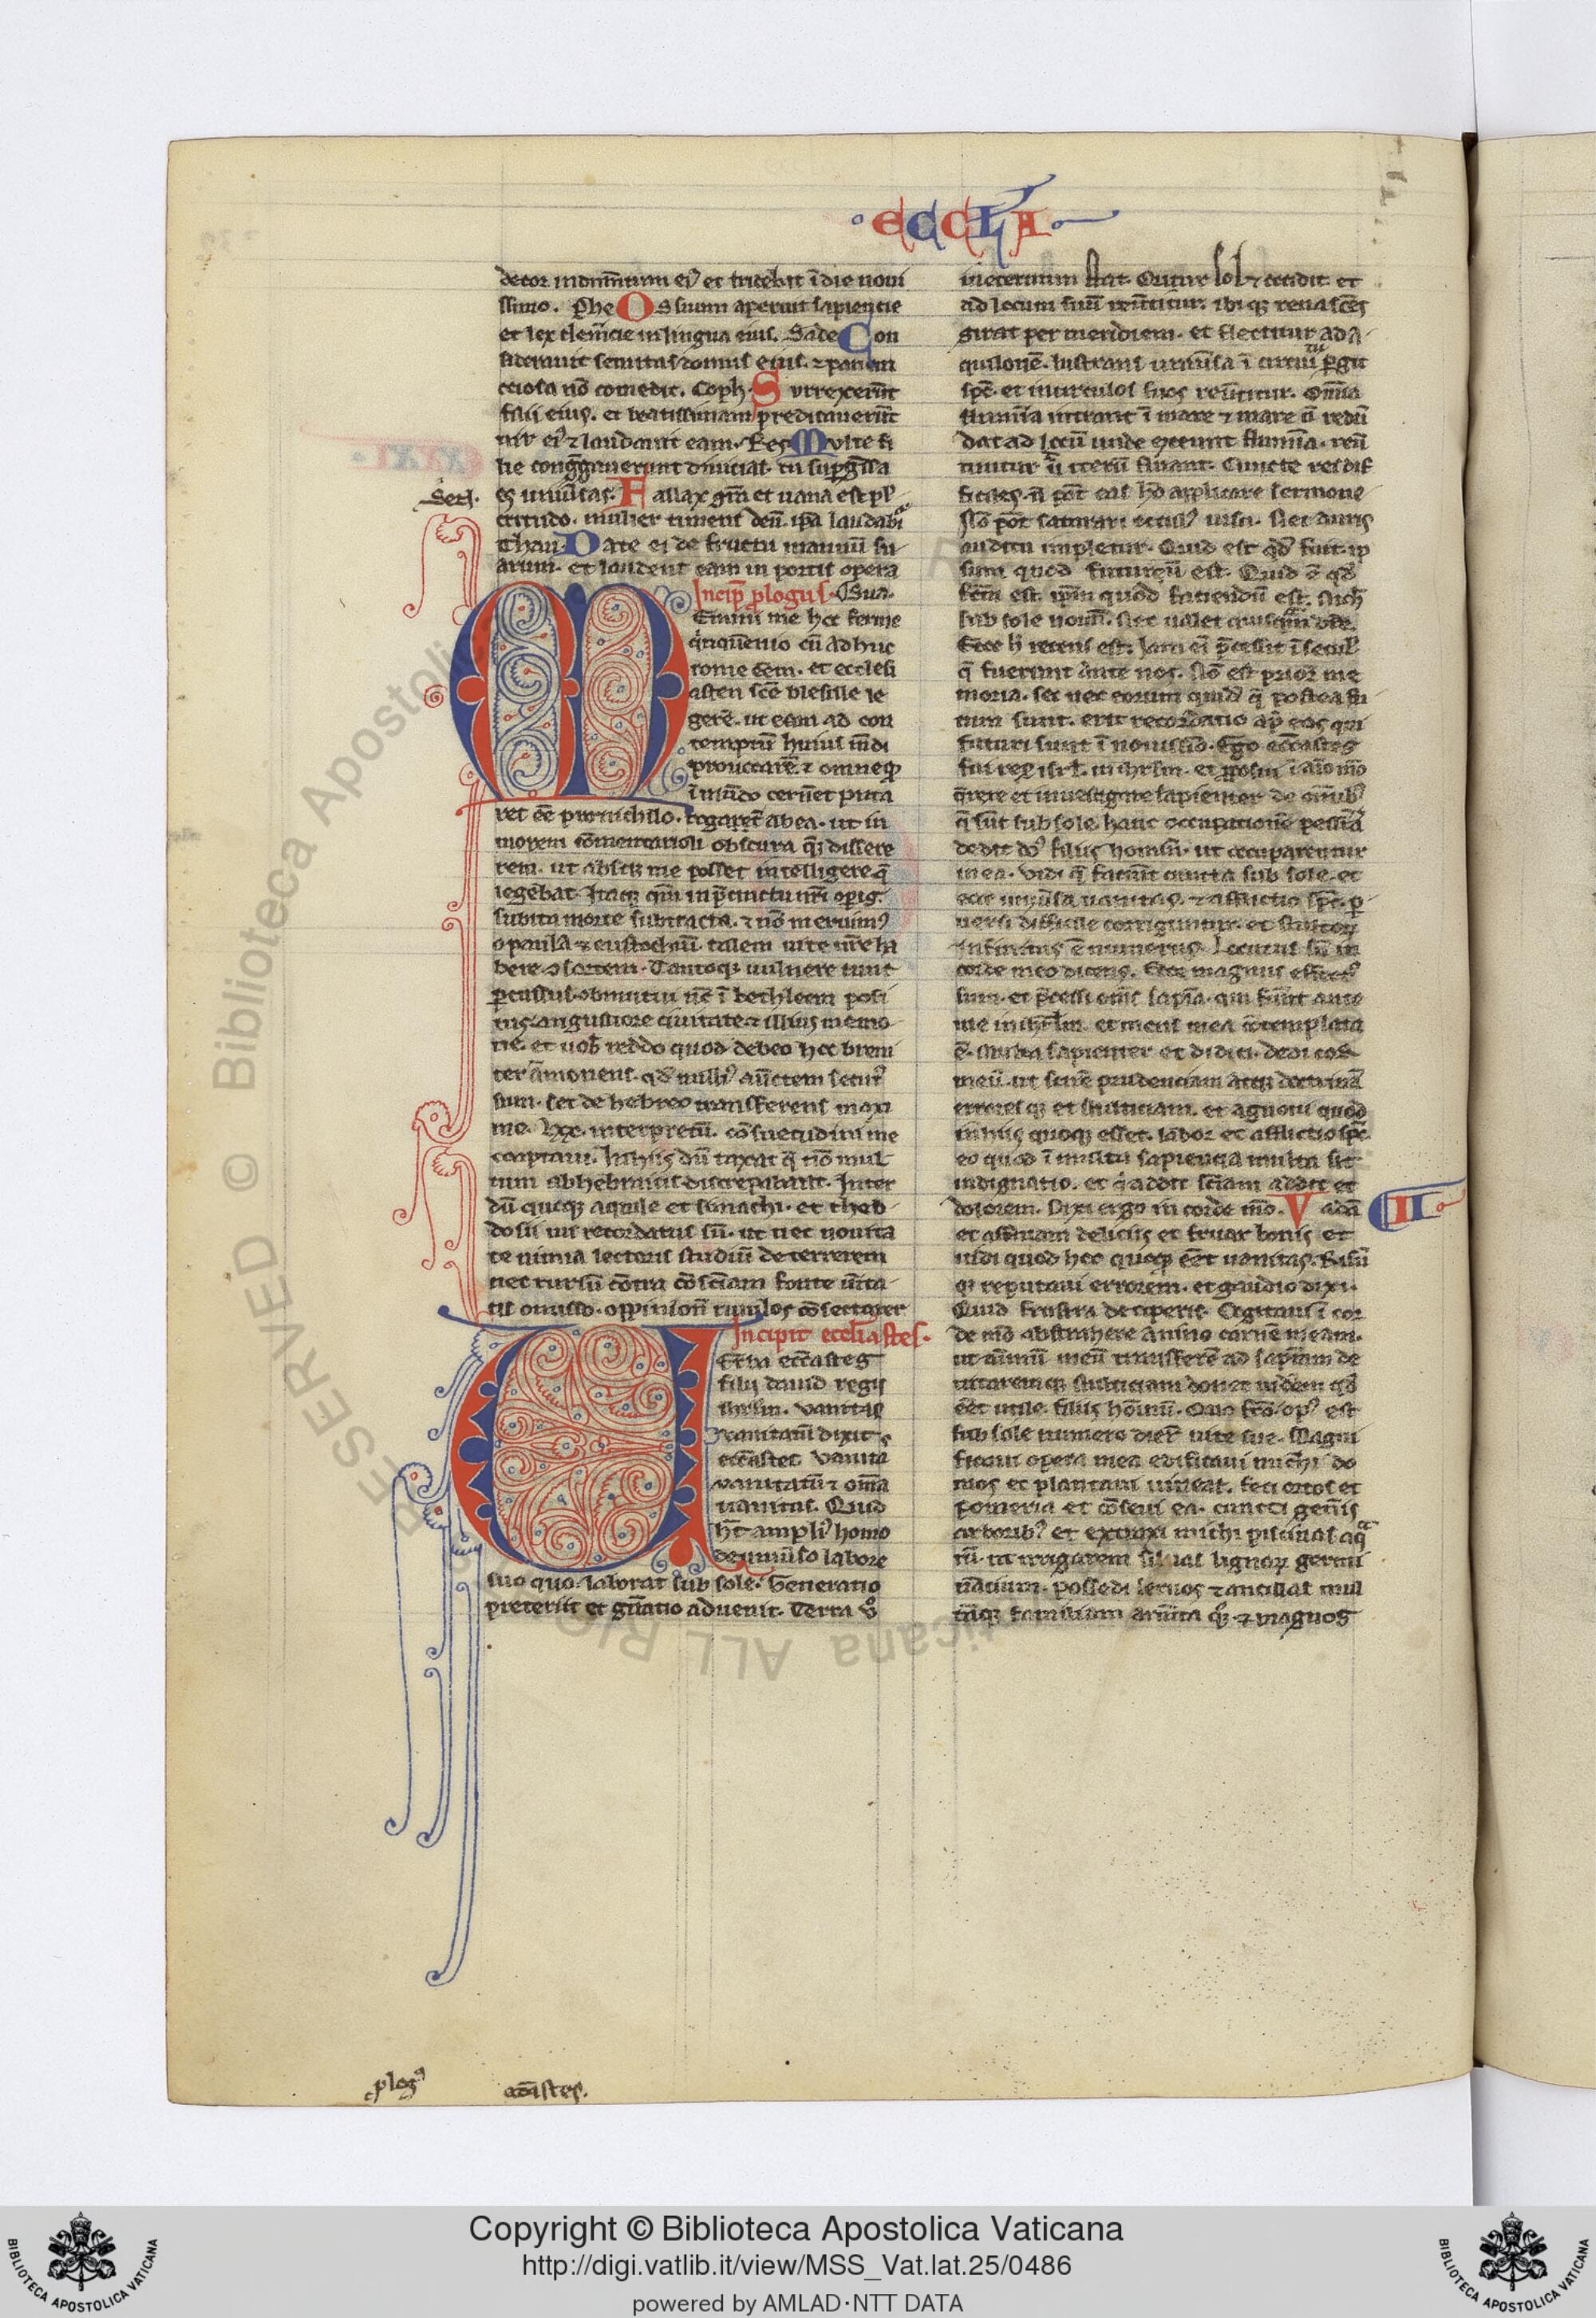 eccLi
decor indumentum ei9 et ridebit ī die noui
ssimo. Phe Os suum aperuit sapiencie
et lex clem̄cie in lingua eius. Sade Con
siderauit semitas domus eius. ⁊ panem
ociosa nō comedit. Coph. Surrexerūt
filii eius. et beatissimam predicauerūt
uir ei9 ⁊ laudauit eam. Res Multe fi
lie congͣgauerunt diuicias. tu suꝑgͣssa
es uniūsas. Fallax gr̄a et uana est pl
Sen.
critudo. mulier timens deū. ip̄a laudabiͭ
Thau. Date ei de fructu manuū su
arum. et laudent eam in portis opera
Incip̄ ꝓlogus. Sua.
Emini me hoc ferme
qͥnquēnio cū adhuc
rome eēm. et ecclesi
asten sc̄e blesille le
gerē. ut eam ad con
temptū huius mūdi
prouocarē. ⁊ omneqꝫ
ī mūdo cern̄et puta
ret eē pro nichilo. rogaret̄ ab ea. ut in
morem cōmentarioli obscura qͣqꝫ dissere
rem. ut absqꝫ me posset intelligere q̄
legebat. Itaqꝫ qm̄ in ꝓcinctu nr̄i oꝑis.
subita morte subtracta. ⁊ nō meruim9
o paula ⁊ eustochiū. talem uite nr̄e ha
bere ɔsortem. Tantoqꝫ uulnere tunc
ꝑcussus. obmutui nc̄ ī bethleem posi
tus. angustiore ciuitate. ⁊ illius memo
rie. et uob̄ reddo quod debeo hoc breui
ter āmonens. qd̄ nulli9 auc̄tem secut9
sum. set de hebreo transferens maxi
me. lxx. interpretū. cōsuetudini me
coaptaui. In hiis dū taxat q̄ nō mul
tum ab hebraicis discrepabant. Inter
dū quoqꝫ aquile et simachi. et theo
dosii uis recordatus sū. ut nec nouita
te nimia lectoris studiū deterrerem
nec rursū cōtra cōsciam fonte ūita
tis omisso. oppinionū riuulos cōsectarer
Incipit eccl̄iastes.
Erba ecc̄astes
filij dauid regis
ihrl̄m. vanitas
vanitatū dixit
ecc̄astes Vanita
vanitatū ⁊ om̄ia
uanitas. Quid
h̄t ampli9 homo
de uniūso labore
suo quo. laborat sub sole. Generatio
preteriit et gn̄atio aduenit. Terra ū
in eternum stat. Oritur sol ⁊ occidit. et
ad locum suū reūtitur. ibiqꝫ renascēs
girat per meridiem. et flectitur ad a
quilonē. lustrans uniūsa ī circuitu ꝑgit
sp̄c. et in circulos suos reūtitur. Om̄ia
flumīa intrant ī mare ⁊ mare n̄ redū
dat ad locū unde exeunt flumīa. reū
tuntur ut iterū fluant. Cuncte res dif
ficiles. n̄ pōt eas hō explicare sermone
Nō pōt saturari ocul9 uisu. nec auris
auditu impletur. Quid est qd̄ fuit. ip
sum quod futurū est. Quid ē qd̄
fcm̄ est. ip̄m quod faciendū est. Nich̄
sub sole nouū. nec ualet quisqͣm dicͤe
Ecce h̄ recens est. Iam ei p̄cessit ī seculꝭ
q̄ fuerunt ante nos. Nō est prior me
moria. set nec eorum quidē q̄ postea fu
tura sunt. erit recordatio aꝓ eos qui
futuri sunt ī nouissīo. Ego ecc̄astes
fui rex isrl̄. in ihrlm̄. et ꝓposui ī aīo m̄o
qͥrere et inuestigare sapienter de omīb9
q̄ sūt sub sole. hanc occupationē pessīa
dedit ds̄ filiis hominū. ut occuparentur
in ea. Vidi q̄ fiunt cuncta sub sole. et
ecce uniūsa uanitas. ⁊ afflictio sp̄c. ꝑ
uersi difficile corriguntur. et stultoꝝ
infinitus ē numerus. Locutus sū in
corde meo dicens. Ecce magnus effect9
sum. et p̄cessi om̄s sapīa. qui fuer̄t ante
me in ihrl̄m. et mens mea cōtemplata
ē. multa sapienter et didici. dedi cor
meū. ut scirē prudenciam atqꝫ doctrinā
erroresqꝫ et stulticiam. et agnoui quod
in hiis quoqꝫ esset. labor et afflictio sp̄c
eo quod ī multa sapiencia multa sit
indignatio. et qͥ addit sc̄iam addit et
dolorem. Dixi ergo in corde m̄o. Vadā
II
et affluam deliciis et fruar bonis et
uidi quod hoc quoqꝫ eēt uanitas. Risū
qꝫ reputaui errorem. et gaudio dixi.
Quid frustra deciperis. Cogitaui ī cor
de m̄o abstrahere a uino carnē meam.
ut aīmū meū transferē ad sapīam de
uitaremqꝫ stulticiam donec uiderem qd̄
eēt utile. filiis hoīnū. Quo fcō op9 est
sub sole numero dierū uite sue. Magni
ficaui opera mea edificaui michi do
mos et plantaui uineas. feci ortos et
pomeria et cōseui ea. cuncti genīs
arborib9 et extruxi michi piscinas aqͣ
rū. ut irrigarem siluas lignoꝝ germi
nācium. possedi seruos ⁊ ancillas mul
tāqꝫ familiam armīta qͦqꝫ ⁊ magnos
ꝓlog9
eccīastes.
Copyright © Biblioteca Apostolica Vaticana
http://digi.vatlib.it/view/MSS_Vat.lat.25/0486
powered by AMLAD·NTT DATA
BIBLIOTECA APOSTOLICA VATICANA
BIBLIOTECA APOSTOLICA VATICANA